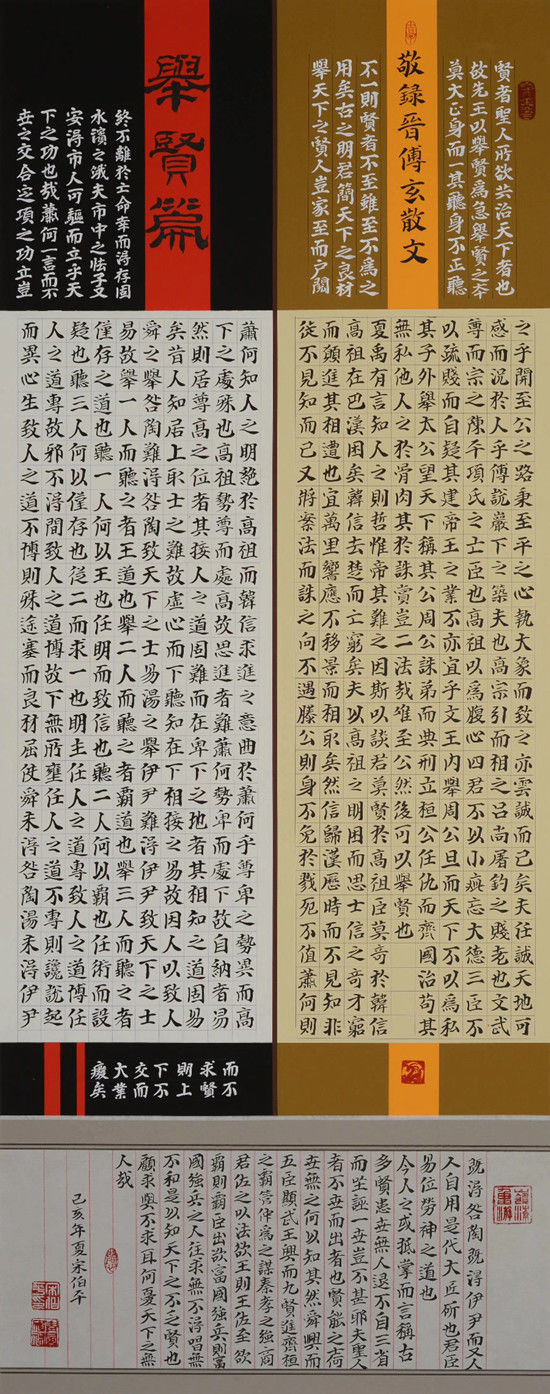 賢者聖人所欲共治天下者也
故先王以舉賢為急舉賢之本
莫大正身而一其聽身不正聽
敬錄晉傅玄散文
不一則賢者不至雖至不為之
用矣古之明君簡天下之良材
舉天下之賢人豈家至而戶閱
之乎開至公之路秉至平之心執大象而致之亦雲誠而已矣夫任誠天地可
感而況於人乎傅說巖下之築夫也高宗引而相之呂尚屠釣之賤老也文武
尊而宗之陳平項氏之亡臣也高祖以為腹心四君不以小疵忘大德三臣不
以疏賤而自疑其建帝王之業不亦宜乎文王內舉周公旦而天下不以為私
其子外舉太公望天下稱其公周公誅弟而典刑立桓公任仇而齊國治苟其
無私他人之於骨肉其於誅賞豈二法哉唯至公然後可以舉賢也
夏禹有言知人之則哲惟帝其難之因斯以談君莫賢於高祖臣莫奇於韓信
高祖在巴漢困矣韓信去楚而亡窮矣夫以高祖之明困而思士信之奇才窮
而願進其相遭也宜萬里響應不移景而相取矣然信歸漢歷時而不見知非
徒不見知而已又將案法而誅之向不遇滕公則身不免於戮死不值蕭何則
舉賢篇
終不離於亡命幸而得存固
水濱之餓夫市中之怯子又
安得市人可驅而立乎天
下之功也哉蕭何一言而不
世之交合定項之功立豈
蕭何知人之明絕於高祖而韓信求進之意曲於蕭何乎尊卑之勢異而高
下之處殊也高祖勢尊而處高故思進者難蕭何勢卑而處下故自納者易
然則居尊高之位者其接人之道固難而在卑下之地者其相知之道固易
矣昔人知居上取士之難故虛心而下聽知在下相接之易故因人以致人
舜之舉咎陶難得咎陶致天下之士易湯之舉伊尹難得伊尹致天下之士
易故舉一人而聽之者王道也舉二人而聽之者霸道也舉三人而聽之者
僅存之道也聽一人何以王也任明而致信也聽二人何以霸也任術而設
疑也聽三人何以僅存也從二而求一也明主任人之道專致人之道博任
人之道專故邪不得間致人之道博故下無所壅任人之道不專則讒說起
而異心生致人之道不博則殊途塞而良材屈使舜未得咎陶湯未得伊尹
而不
求賢
則上
下不
交而
大業
廢矣
既得咎陶既得伊尹而又人
人自用是代大匠斫也君臣
易位勞神之道也
今人之或抵掌而言稱古
多賢患世無人退不自三省
而坐誣一世豈不甚邪夫聖人
者不世而出者也賢能之士何
世無之何以知其然舜興而
五臣顯武王興而九賢進齊桓
之霸管仲為之謀秦孝之強商
君佐之以法欲王則王佐至欲
霸則霸臣出欲富國強兵則富
國強兵之人往求無不得唱無
不和是以知天下之不乏賢也
顧求與不求耳何憂天下之無
人哉
己亥年夏宋伯平